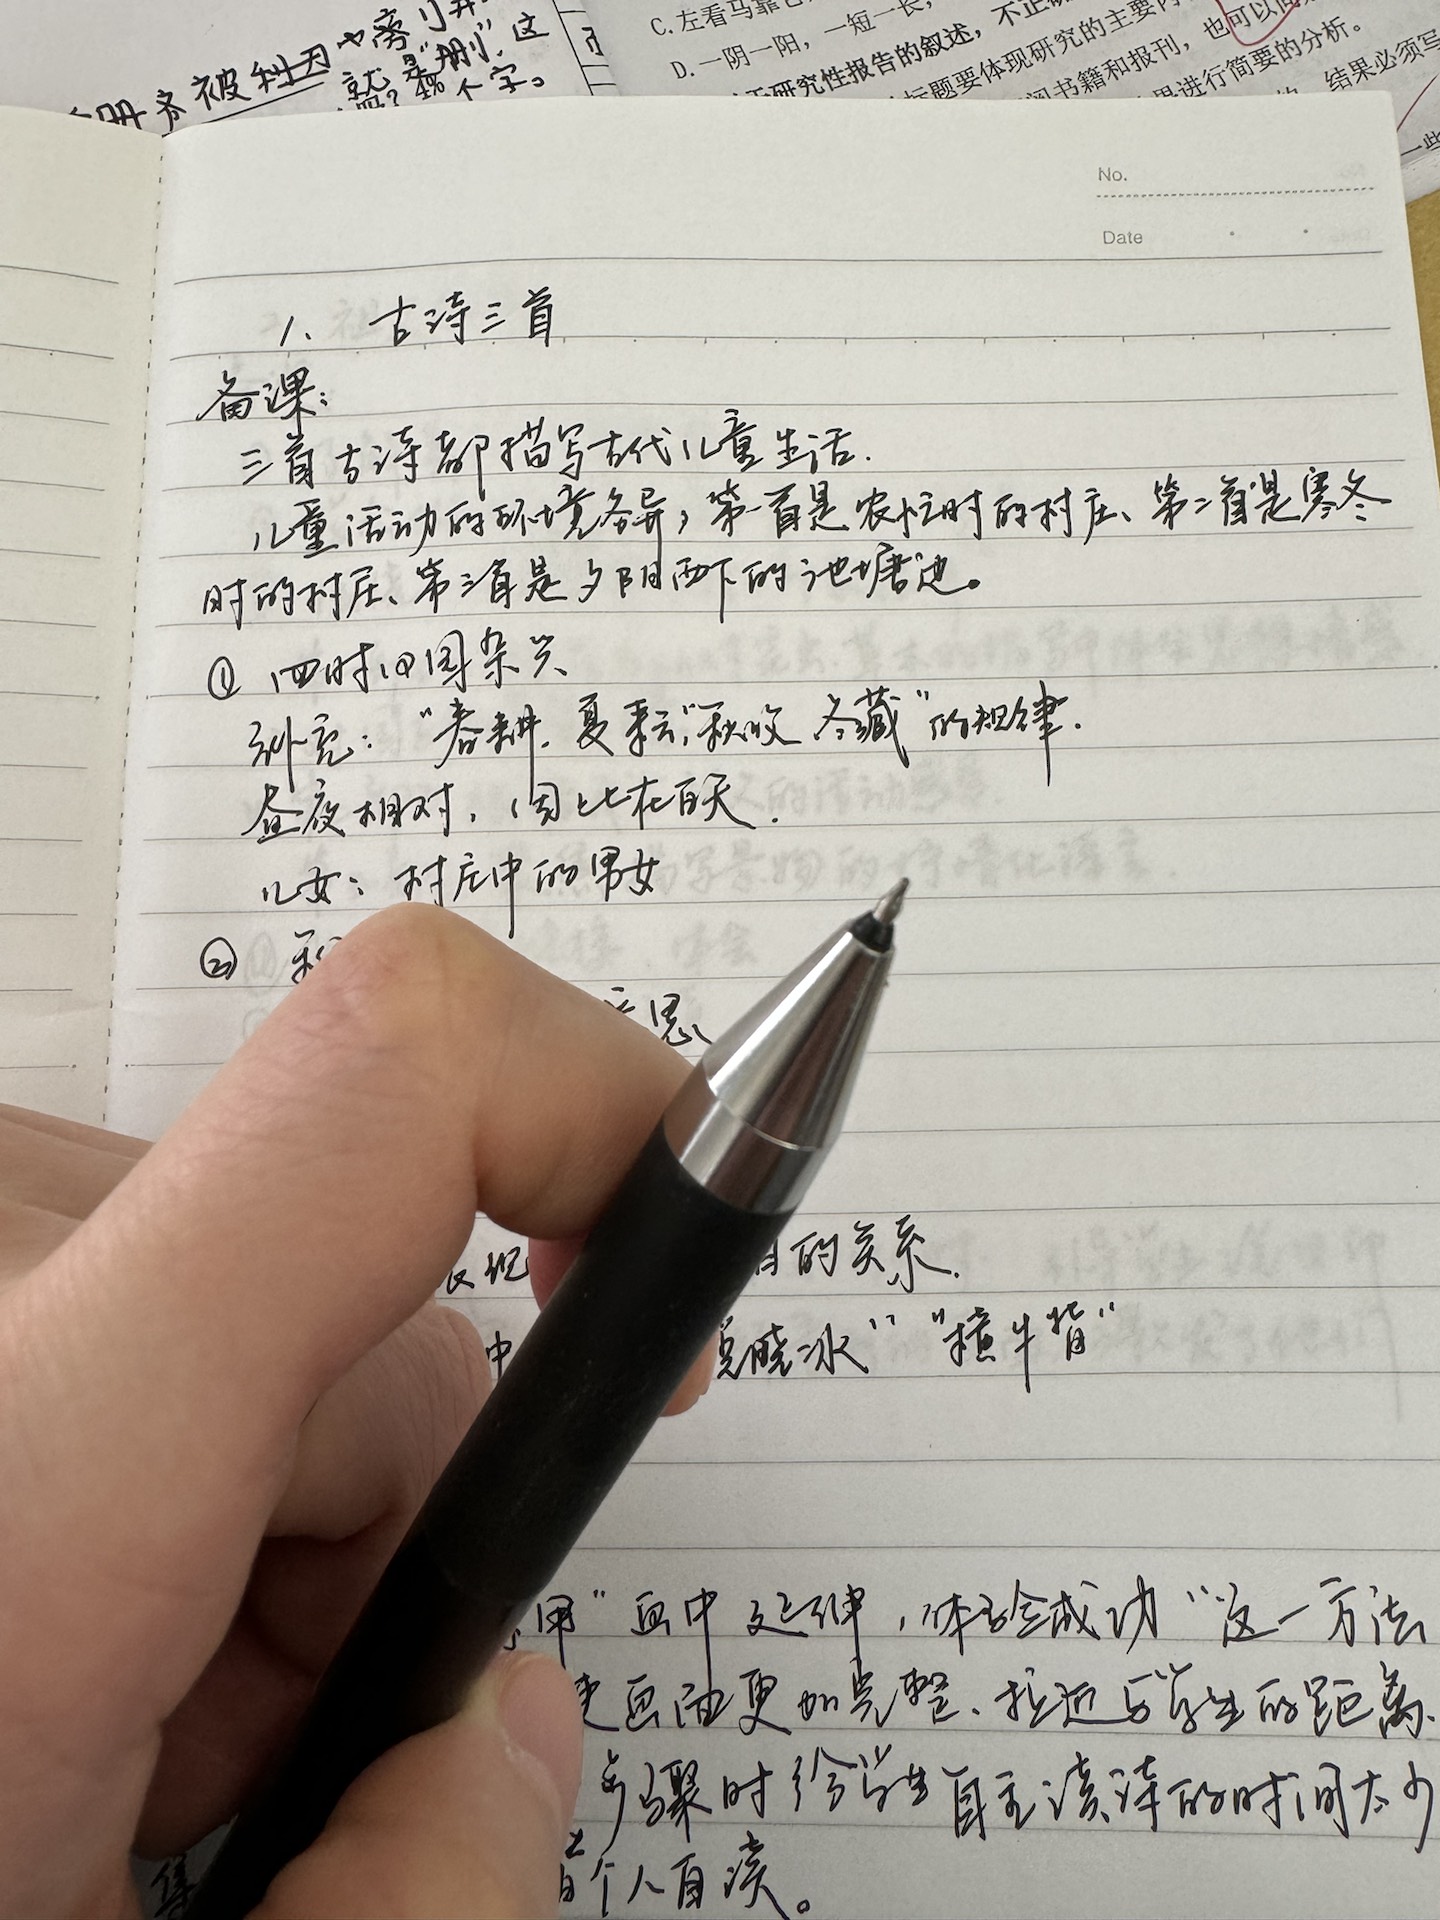 被利因
就是"删"这
个字。
C.左看马靠
D.一阴一阳，一短一长，
研究性报告的叙述，不正确
标题要体现研究的主要内
书籍和报刊，也可以向
进行简要的分析。
结果必须写
一些
No.
Date
1、古诗三首
备课：
三首古诗都描写古代儿童生活.
儿童活动的环境各异，第一首是农忙时的村庄、第二首是寒冬
时的村庄、第三首是夕阳西下的池塘边。
① 四时田园杂兴
补充："春耕、夏耘、秋收 冬藏"的规律.
昼夜相对，因此在白天.
儿女：村庄中的男女
②
意思
的关系.
中 晓冰" "横牛背"
用"画中延伸，体验成功"这一方法
使画面更加完整、拉近与学生的距离.
步骤时给学生自主读诗的时间太少
个人自读。